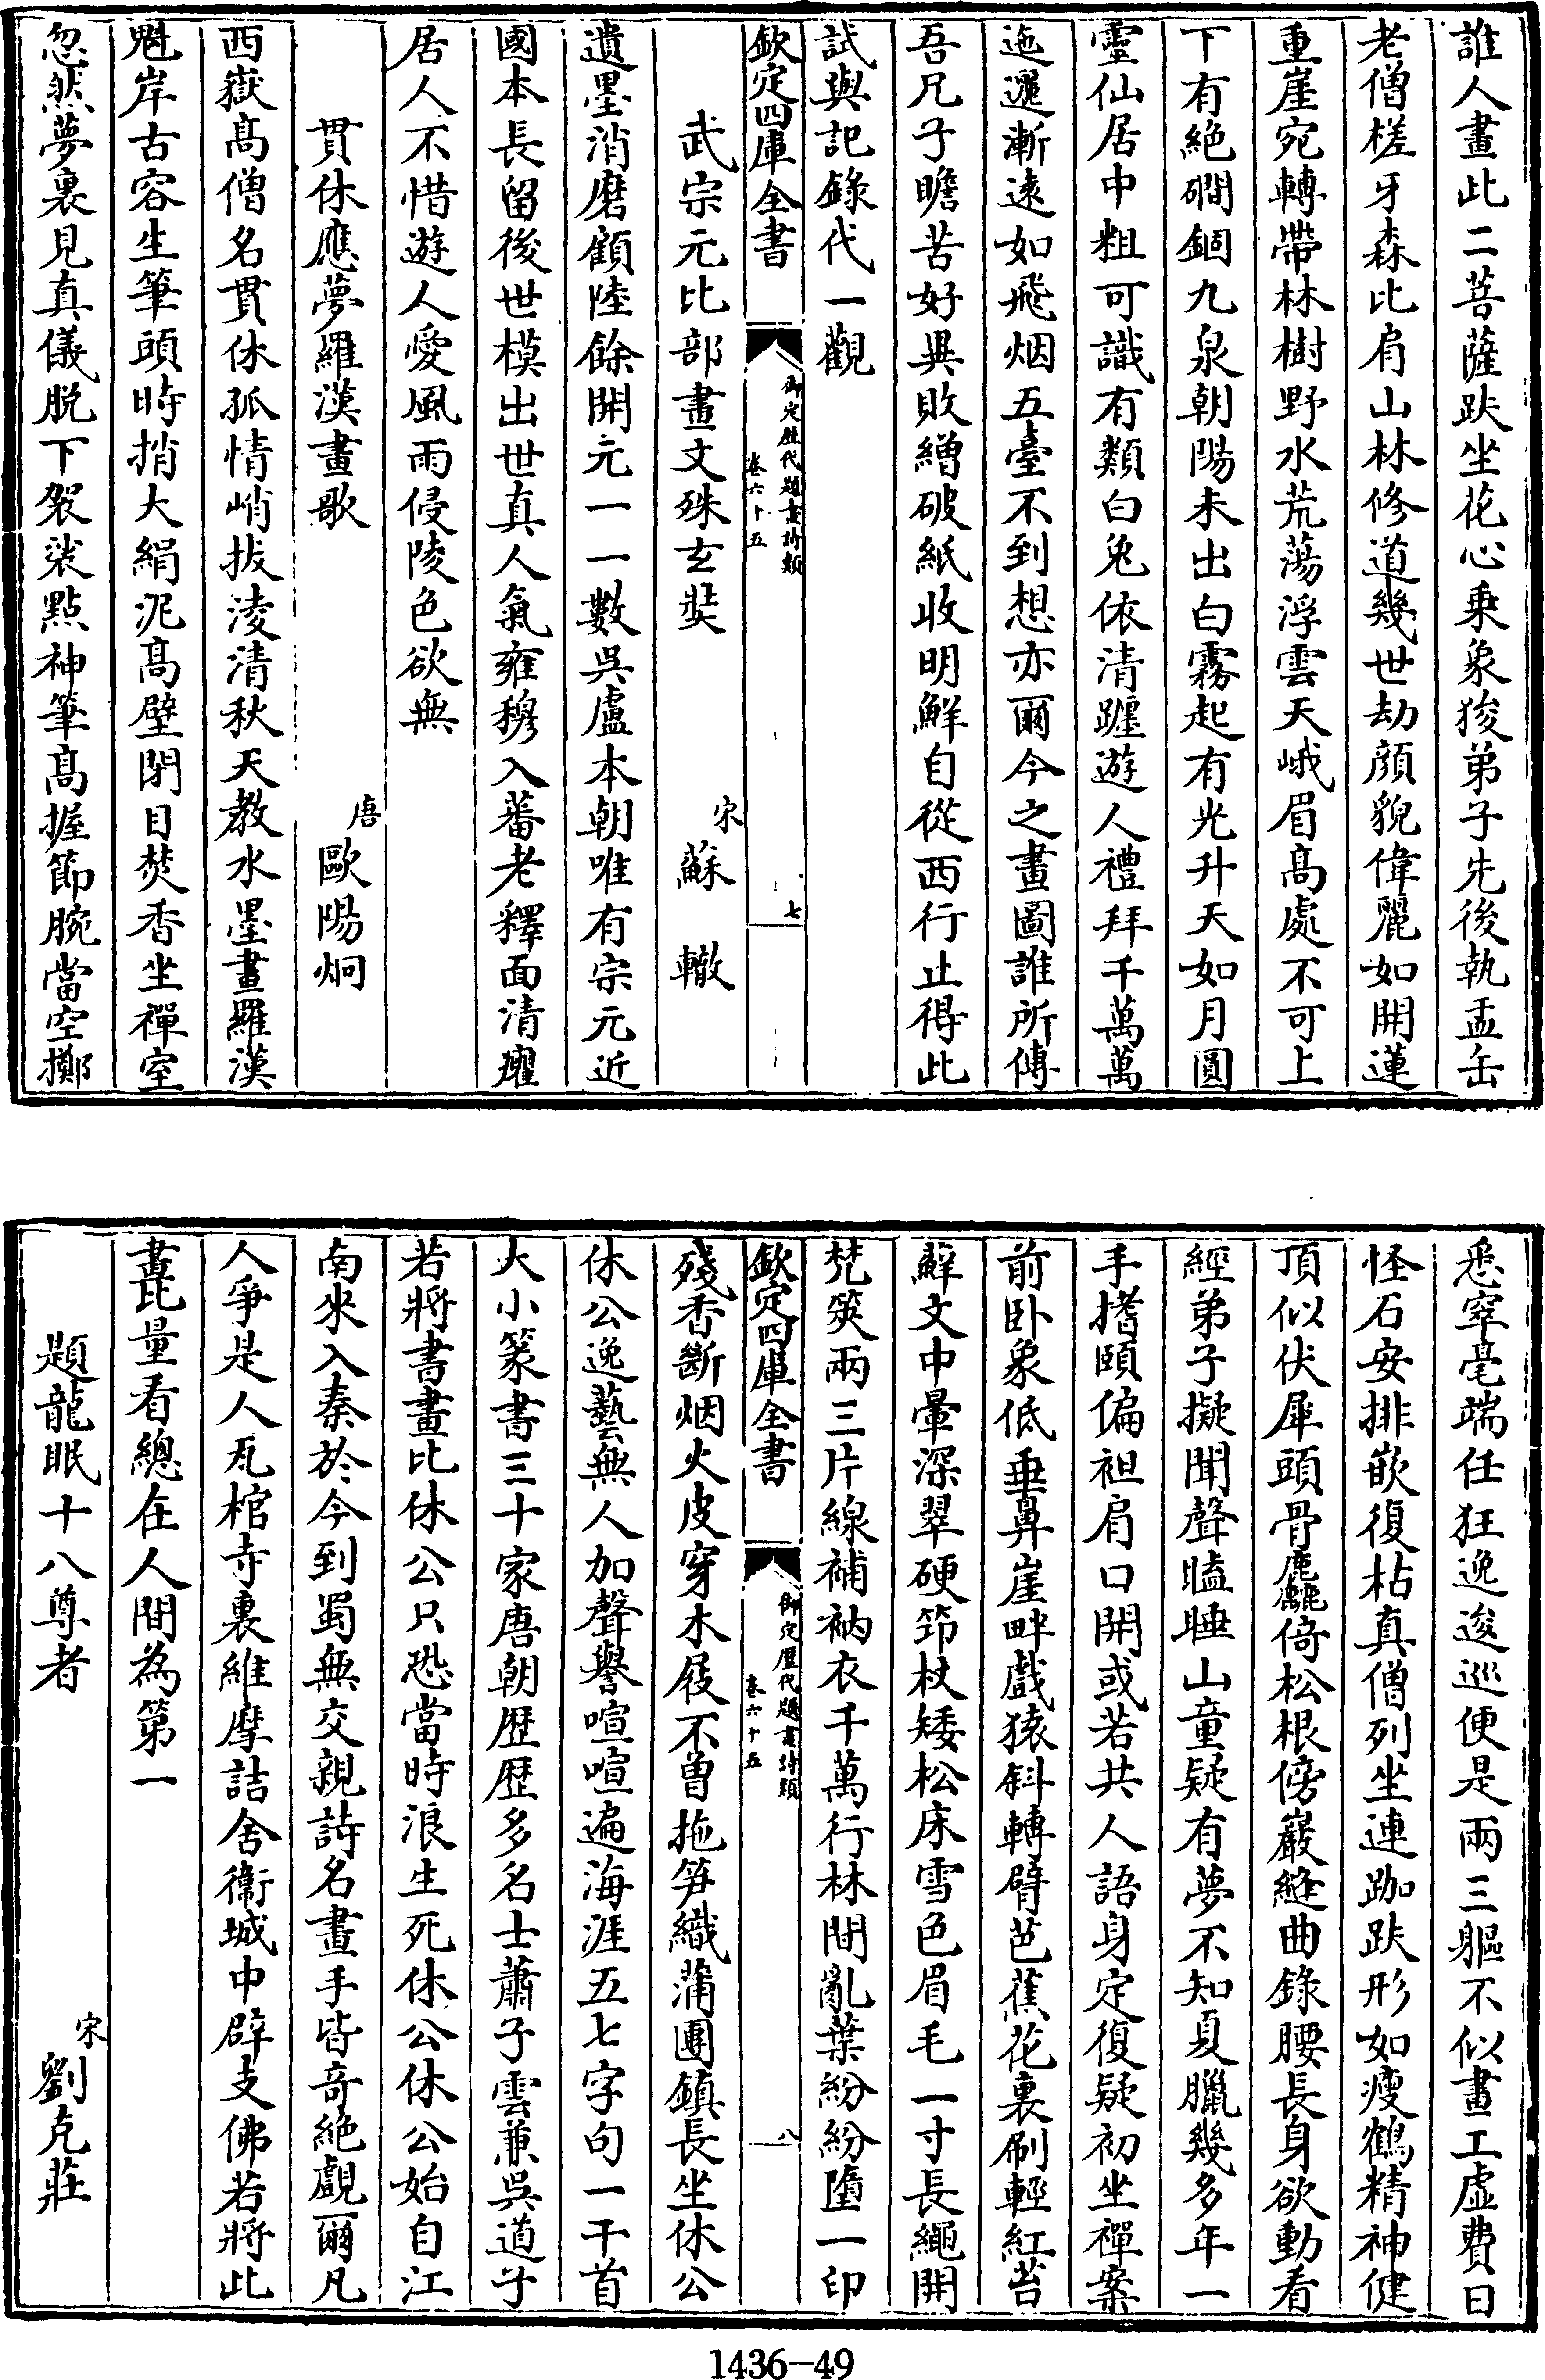 誰人畫此二菩薩趺坐花心乗象狻弟子先後執盂缶
老僧槎牙森比肩山林修道幾世劫顔貌偉麗如開蓮
重崖宛轉帶林樹野水荒蕩浮雲天峨眉髙處不可上
下有絶磵錮九泉朝陽未出白霧起有光升天如月圓
靈仙居中粗可識有類白兔依清躔遊人禮拜千萬萬
迤邐漸遠如飛烟五臺不到想亦爾今之畫圖誰所傳
吾兄子瞻苦好異敗繒破紙收明鮮自從西行止得此
試與記錄代一觀
欽定四庫全書
御定歴代題畫詩類
卷六十五
七
武宗元比部畫文殊𤣥奘
宋蘇轍
遺墨消磨顧陸餘開元一一數呉盧本朝唯有宗元近
國本長留後世模出世真人氣雍穆入蕃老釋面清癯
居人不惜遊人愛風雨侵陵色欲無
貫休應夢羅漢畫歌
唐歐陽炯
西嶽髙僧名貫休孤情峭拔淩清秋天教水墨畫羅漢
魁岸古容生筆頭時捎大絹泥髙壁閉目焚香坐禪室
忽然夢裏見真儀脱下袈裟點神筆髙握節腕當空擲
悉窣毫端任狂逸逡巡便是兩三軀不似畫工虚費日
怪石安排嵌復枯真僧列坐連跏趺形如瘦鶴精神健
頂似伏犀頭骨麤倚松根傍巖縫曲錄腰長身欲動看
經弟子擬聞聲瞌睡山童疑有夢不知夏臘幾多年一
手搘頤偏袒肩口開或若共人語身定復疑初坐禪案
前卧象低垂鼻崖畔戲猿斜轉臂芭蕉花裏刷輕紅苔
蘚文中暈深翠硬筇杖矮松床雪色眉毛一寸長繩開
梵筴兩三片線補衲衣千萬行林間亂葉紛紛墮一印
欽定四庫全書
御定歴代題畫詩類
卷六十五
八
殘香斷烟火皮穿木屐不曽拖笋織蒲團鎮長坐休公
休公逸藝無人加聲譽喧喧遍海涯五七字句一千首
大小篆書三十家唐朝歴歴多名士蕭子雲兼呉道子
若將書畫比休公只恐當時浪生死休公休公始自江
南來入秦於今到蜀無交親詩名畫手皆竒絶覰爾凡
人爭是人瓦棺寺裏維摩詰舎衞城中辟支佛若將此
畫比量看總在人間為第一
題龍眠十八尊者
宋劉克莊
1436-49